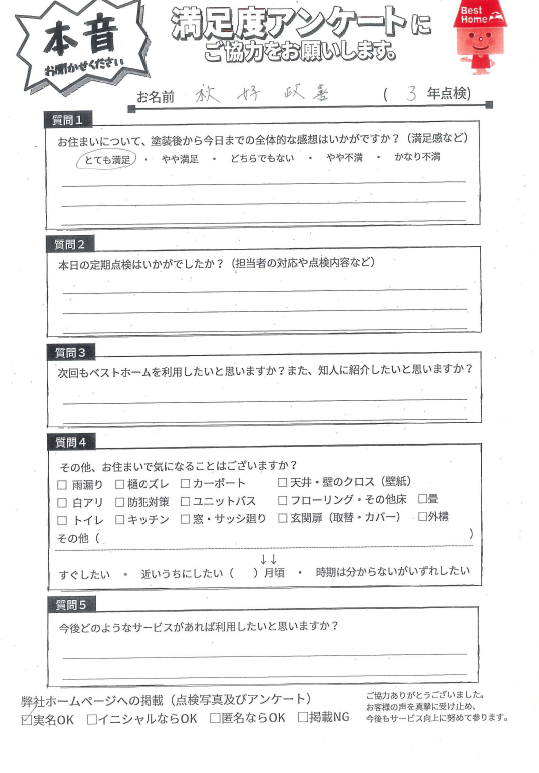 本音
お聞かせください
満足度アンケートに
ご協力をお願いします。
Best
Home
お名前 秋好政喜 ( 3 年点検)
質問1
お住まいについて、塗装後から今日までの全体的な感想はいかがですか？（満足感など）
とても満足 ・ やや満足 ・ どちらでもない ・ やや不満 ・ かなり不満
質問2
本日の定期点検はいかがでしたか？（担当者の対応や点検内容など）
質問3
次回もベストホームを利用したいと思いますか？また、知人に紹介したいと思いますか？
質問4
その他、お住まいで気になることはございますか？
□ 雨漏り □ 樋のズレ □ カーポート □ 天井・壁のクロス（壁紙）
□ 白アリ □ 防犯対策 □ ユニットバス □ フローリング・その他床 □畳
□ トイレ □ キッチン □ 窓・サッシ廻り □ 玄関扉（取替・カバー） □外構
その他（ ）
↓↓
すぐしたい ・ 近いうちにしたい（ ）月頃 ・ 時期は分からないがいずれしたい
質問5
今後どのようなサービスがあれば利用したいと思いますか？
弊社ホームページへの掲載（点検写真及びアンケート）
☑実名OK □イニシャルならOK □匿名ならOK □掲載NG
ご協力ありがとうございました。
お客様の声を真摯に受け止め、
今後もサービス向上に努めて参ります。